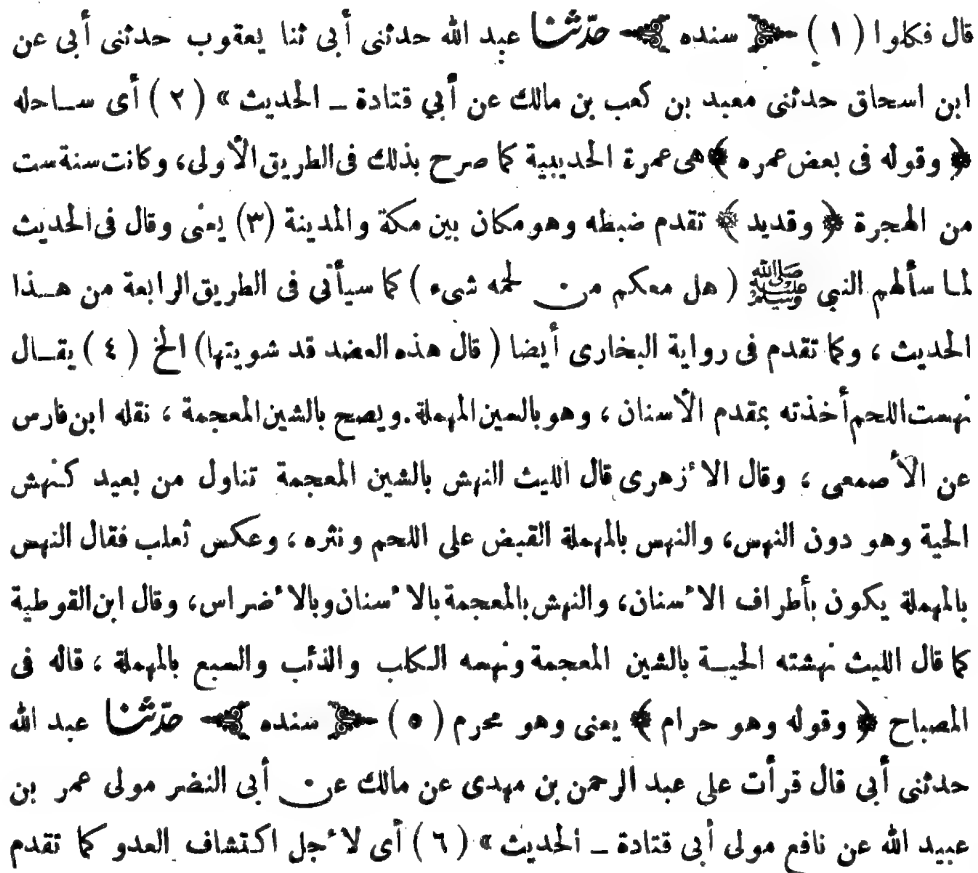 قال فكلوا (١) ﴿ سنده ﴾ حدّثنا عبد الله حدثنى أبى ثنا يعقوب حدثنى أبى عن
ابن اسحاق حدثنى معبد بن كعب بن مالك عن أبي قتادة ــ الحديث » (٢) أى ساحله
﴿ وقوله فى بعض عمره ﴾ هى عمرة الحديبية كما صرح بذلك فى الطريق الأولى، وكانت سنة ست
من الهجرة ﴿ وقديد ﴾ تقدم ضبطه وهو مكان بين مكة والمدينة (٣) يعنى وقال فى الحديث
لما سألهم النبي ﷺ ( هل معكم من لحمه شىء ) كما سيأتى فى الطريق الرابعة من هذا
الحديث ، وكما تقدم فى رواية البخارى أيضا ( قال هذه العضد قد شويتها) الخ (٤) يقال
نهست اللحم أخذته بمقدم الأسنان ، وهو بالسين المهملة . ويصح بالشين المعجمة ، نقله ابن فارس
عن الأصمعى ، وقال الأزهرى قال الليث النهش بالشين المعجمة تناول من بعيد كنهش
الحية وهو دون النهس، والنهس بالمهملة القبض على اللحم ونثره ، وعكس ثعلب فقال النهس
بالمهملة يكون بأطراف الأسنان، والنهش بالمعجمة بالأسنان وبالأضراس، وقال ابن القوطية
كما قال الليث نهشته الحية بالشين المعجمة ونهسه الكلب والذئب والسبع بالمهملة ، قاله فى
المصباح ﴿ وقوله وهو حرام ﴾ يعنى وهو محرم (٥) ﴿ سنده ﴾ حدّثنا عبد الله
حدثنى أبي قال قرأت على عبد الرحمن بن مهدى عن مالك عن أبى النضر مولى عمر بن
عبيد الله عن نافع مولى أبى قتادة ــ الحديث » (٦) أى لأجل اكتشاف العدو كما تقدم